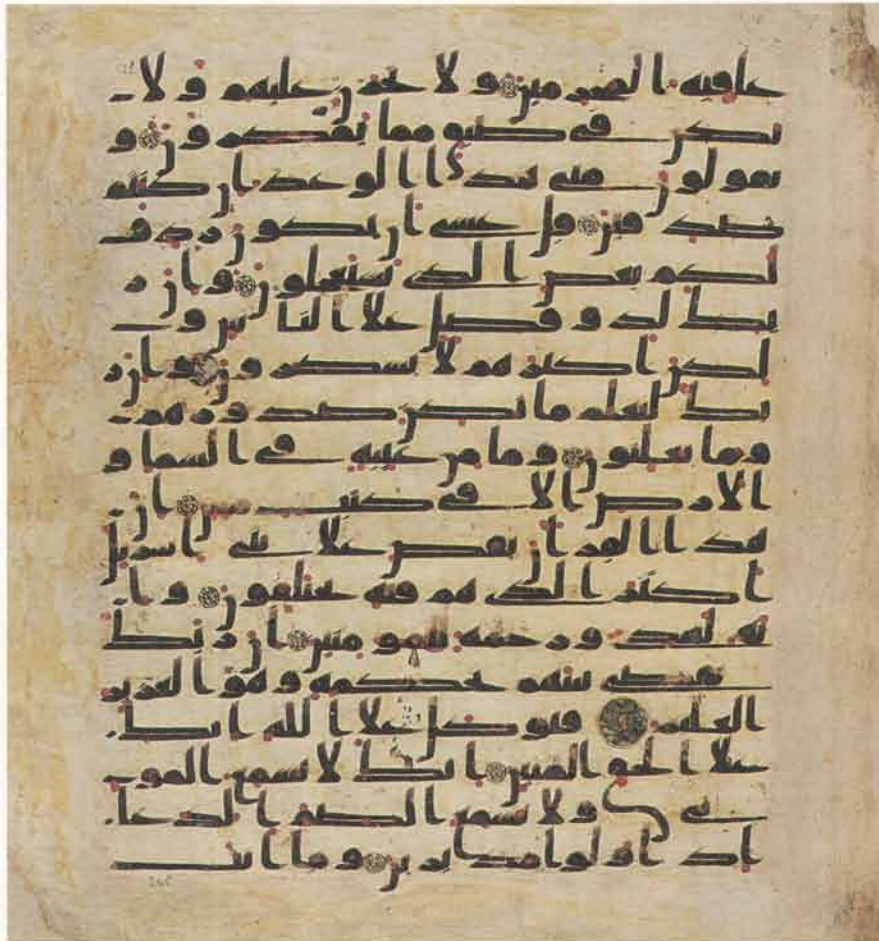 عاقبه المجرمين ولا تحزن عليهم ولا
تكن في ضيق مما يمكرون و
يقولون متى هذا الوعد ان كنتم
صدقين قل عسى ان يكون ردف
لكم بعض الذي تستعجلون وان ر
بك لذو فضل على الناس و
لكن اكثرهم لا يشكرون وان ر
بك ليعلم ما تكن صدورهم
وما يعلنون وما من غيبه في السما و
الارض الا في كتب مبين ان
هذا القران يقص على بني اسريل
اكثر الذي هم فيه يختلفون وا
نه لهدى ورحمه للمومنين ان ربك
يقضي بينهم بحكمه وهو العزيز
العليم فتوكل على الله انك
على الحق المبين انك لا تسمع المو
تى ولا تسمع الصم الدعا
اذا ولوا مدبرين وما انت